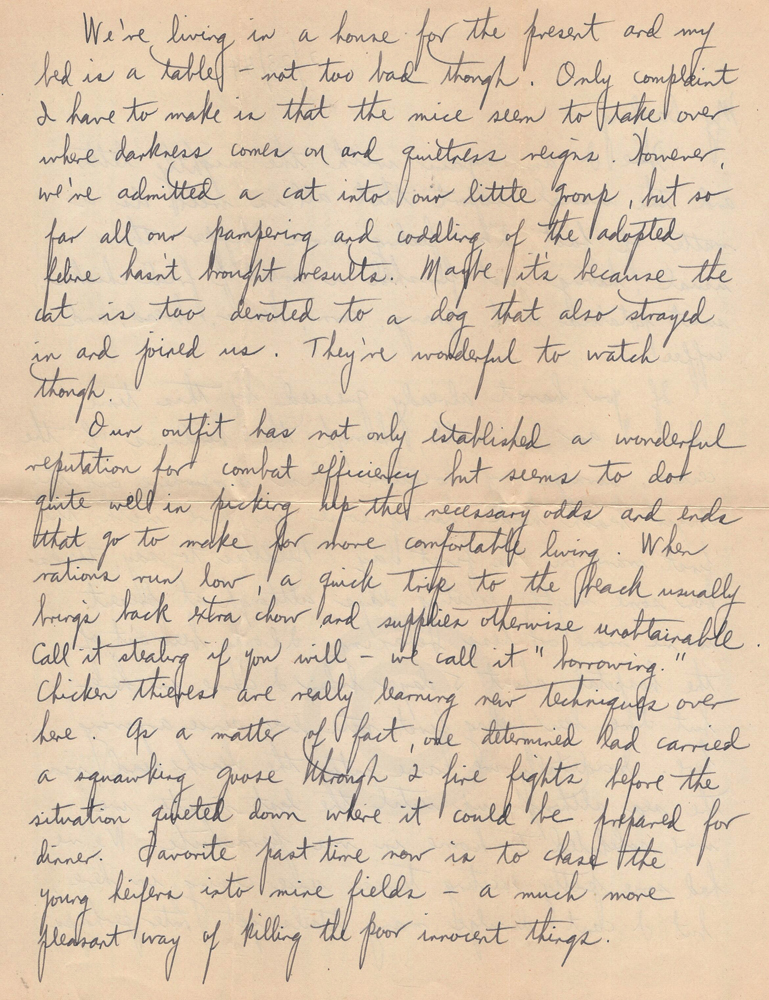 We're living in a house for the present and my
bed is a table - not too bad though. Only complaint
I have to make is that the mice seem to take over
where darkness comes on and quietness reigns. However,
we've admitted a cat into our little group, but so
far all our pampering and coddling of the adopted
feline hasn't brought results. Maybe it's because the
cat is too devoted to a dog that also strayed
in and joined us. They're wonderful to watch
though.
Our outfit has not only established a wonderful
reputation for combat efficiency but seems to do
quite well in picking up the necessary odds and ends
that go to make for more comfortable living. When
rations run low, a quick trip to the beach usually
brings back extra chow and supplies otherwise unobtainable.
Call it stealing if you will - we call it "borrowing."
Chicken thieves are really learning new techniques over
here. As a matter of fact, one determined lad carried
a squawking goose through 2 fire fights before the
situation quieted down where it could be prepared for
dinner. Favorite past time now is to chase the
young heifers into mine fields - a much more
pleasant way of killing the poor innocent things.